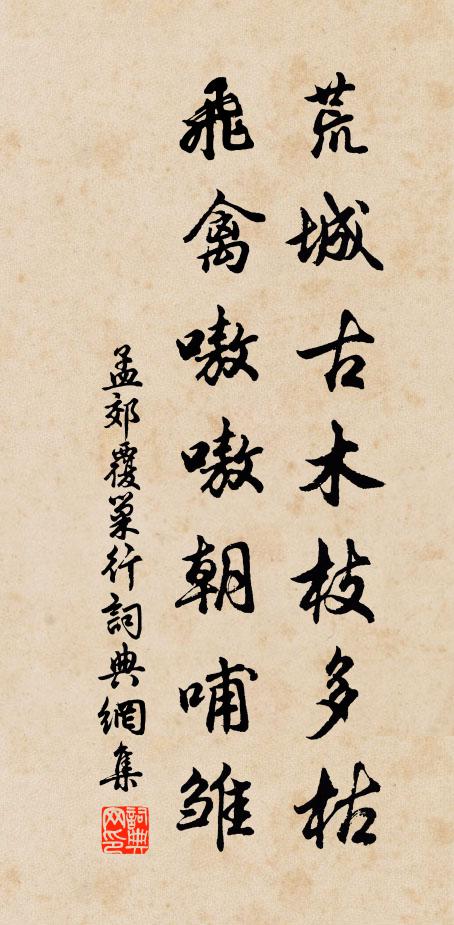 荒城古木枝多枯
飛禽嗷嗷朝哺雏
孟郊覆巢行詞典網集
詞典網印